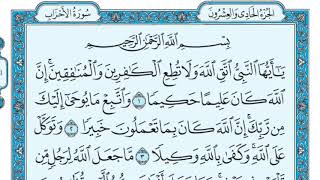 الجزء الحادي والعشرون
سورة الأحزاب
بسم الله الرحمن الرحيم
يَٰٓأَيُّهَا النَّبِيُّ اتَّقِ اللَّهَ وَلَا تُطِعِ الْكَافِرِينَ وَالْمُنَافِقِينَ إِنَّ
اللَّهَ كَانَ عَلِيمًا حَكِيمًا ١ وَاتَّبِعْ مَا يُوحَىٰ إِلَيْكَ
مِن رَّبِّكَ إِنَّ اللَّهَ كَانَ بِمَا تَعْمَلُونَ خَبِيرًا ٢ وَتَوَكَّلْ
عَلَى اللَّهِ وَكَفَىٰ بِاللَّهِ وَكِيلًا ٣ مَّا جَعَلَ اللَّهُ لِرَجُلٍ مِّن